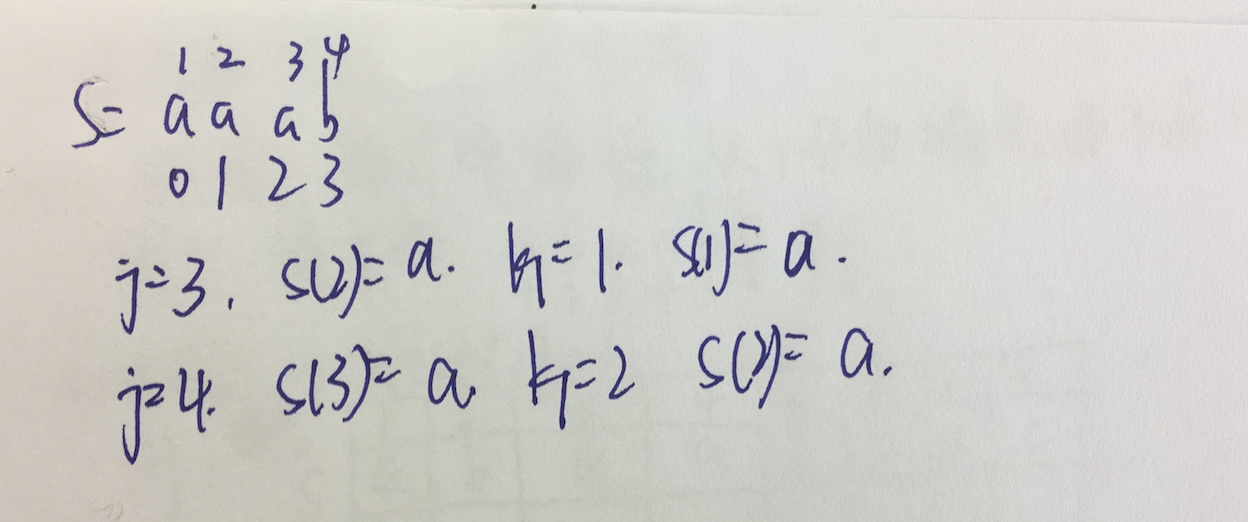 1 2 3 4
S= a a a b
0 1 2 3
j=3. S(2)=a. k1=1. S(1)=a.
j=4. S(3)=a. k1=2 S(2)=a.